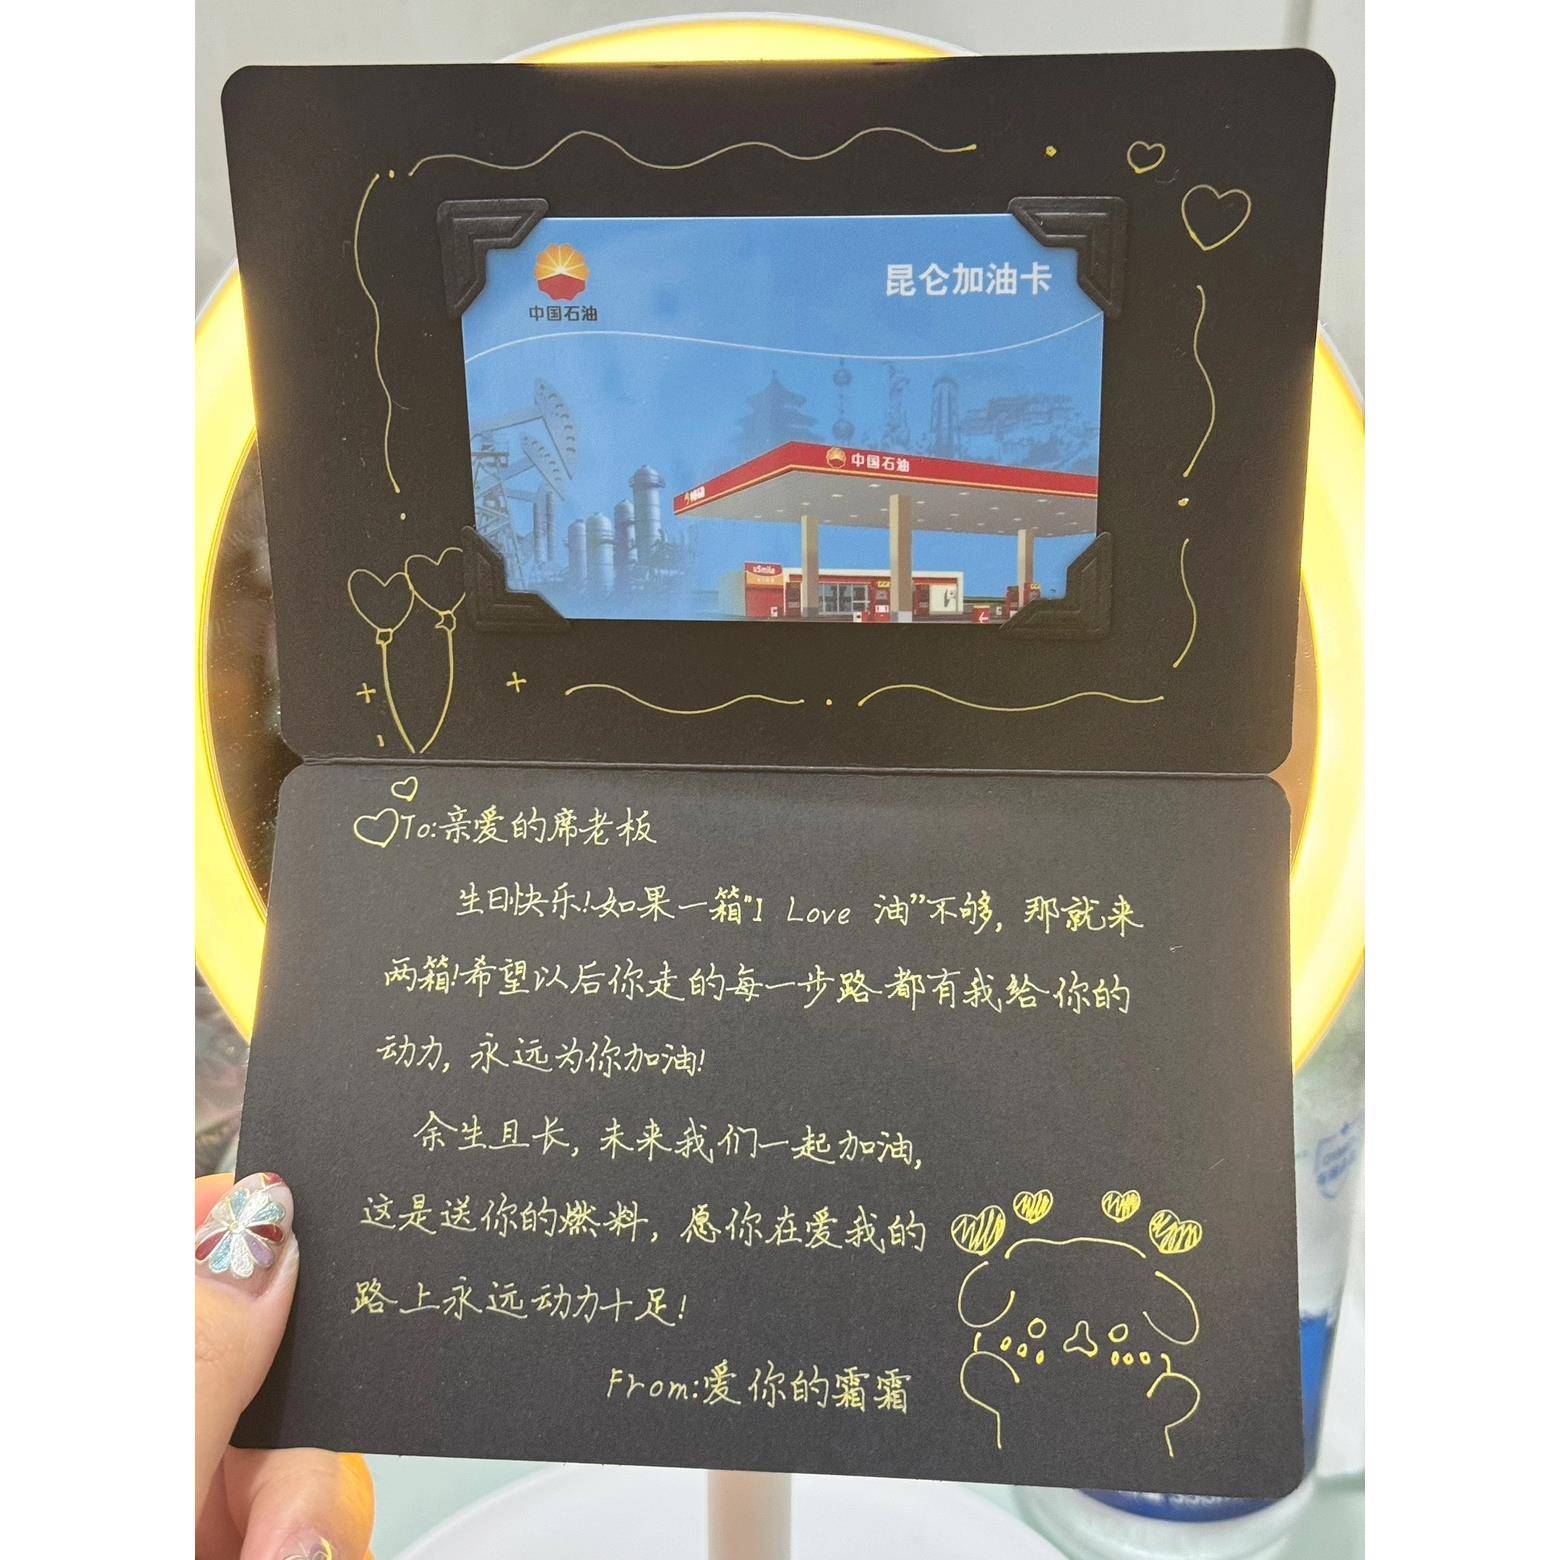 昆仑加油卡
中国石油
中国石油
uSmile
To:亲爱的席老板
生日快乐!如果一箱"I Love 油"不够,那就来
两箱!希望以后你走的每一步路都有我给你的
动力,永远为你加油!
余生且长,未来我们一起加油,
这是送你的燃料,愿你在爱我的
路上永远动力十足!
From:爱你的霜霜